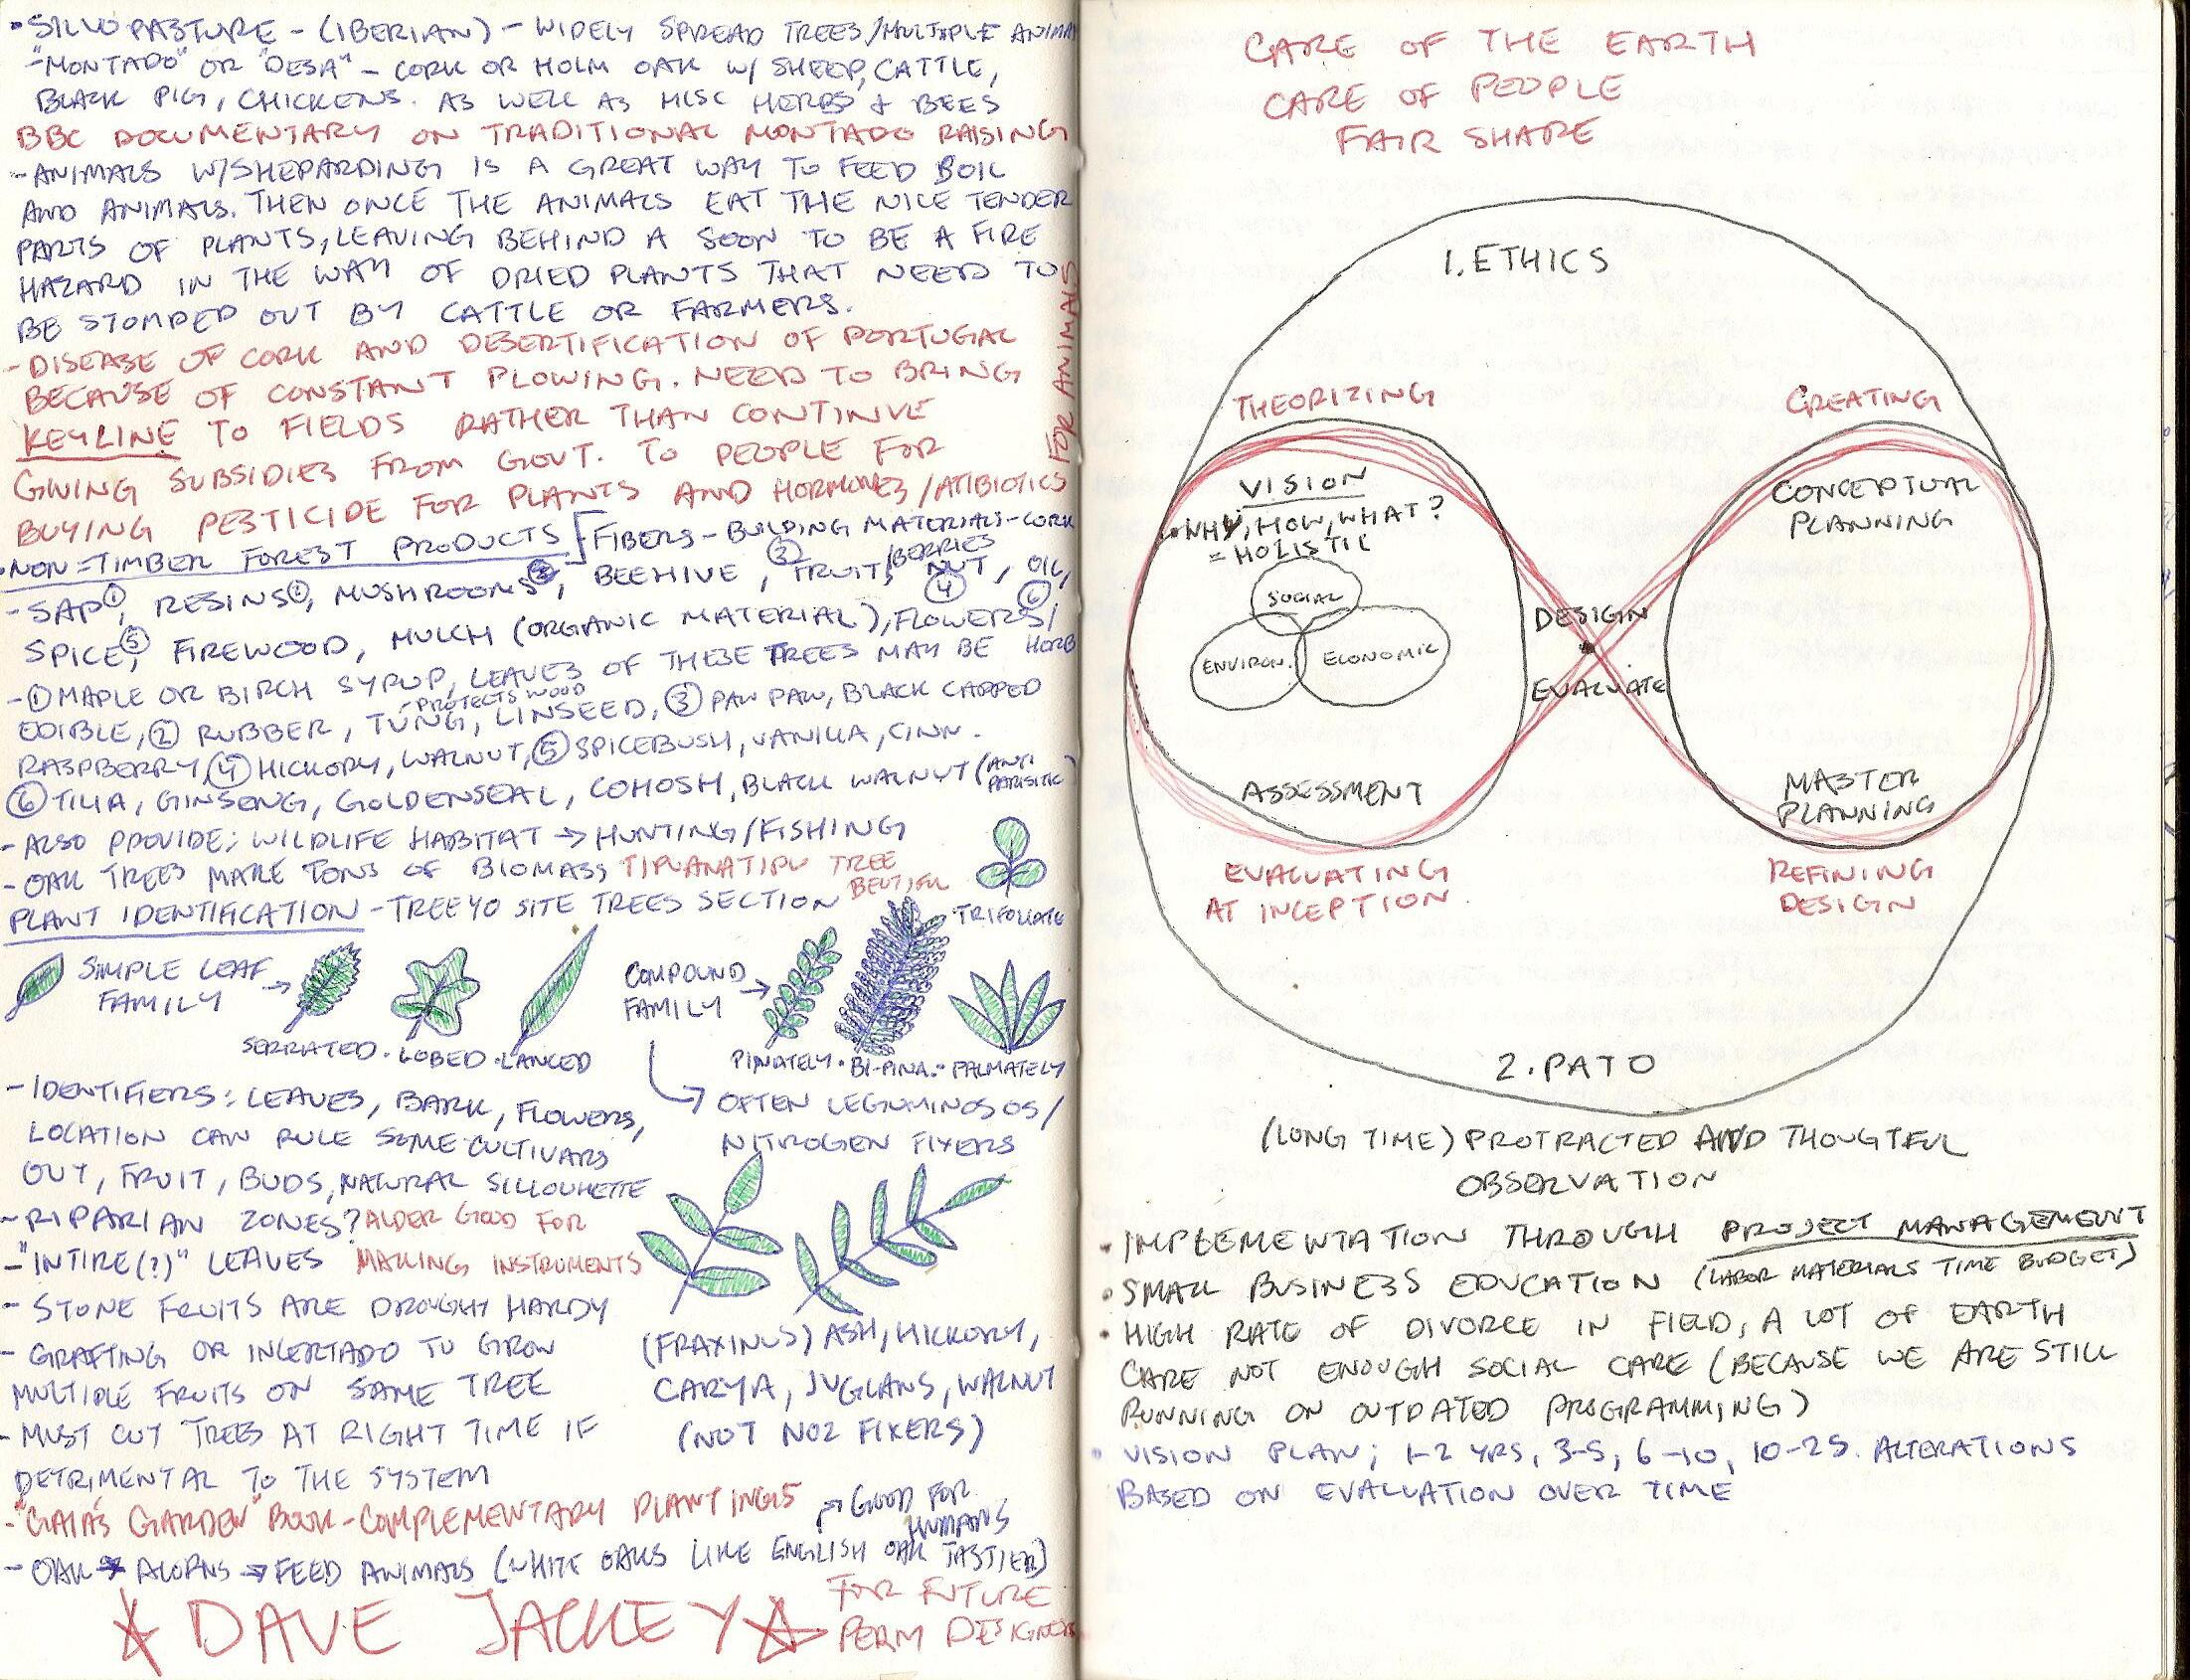 • SILVOPASTURE - (IBERIAN) - WIDELY SPREAD TREES/MULTIPLE ANIMA
- "MONTADO" OR "DESA" - CORK OR HOLM OAK W/ SHEEP, CATTLE,
BLACK PIG, CHICKENS. AS WELL AS MISC HERBS & BEES
BBC DOCUMENTARY ON TRADITIONAL MONTADO RAISING
- ANIMALS W/SHEPARDING IS A GREAT WAY TO FEED BOIL
AND ANIMALS. THEN ONCE THE ANIMALS EAT THE NICE TENDER
PARTS OF PLANTS, LEAVING BEHIND A SOON TO BE A FIRE
HAZARD IN THE WAY OF DRIED PLANTS THAT NEED TO
BE STOMPED OUT BY CATTLE OR FARMERS.
- DISEASE OF CORK AND DESERTIFICATION OF PORTUGAL
BECAUSE OF CONSTANT PLOWING. NEED TO BRING
KEYLINE TO FIELDS RATHER THAN CONTINUE
GIVING SUBSIDIES FROM GOVT. TO PEOPLE FOR
BUYING PESTICIDE FOR PLANTS AND HORMONES/ATIBIOTICS
FOR ANIMALS
• NON=TIMBER FOREST PRODUCTS [FIBERS - BUILDING MATERIALS - CORK
- SAP①, RESINS②, MUSHROOMS, BEEHIVE, FRUIT/BERRIES③, NUT④, OIL,
SPICE⑤, FIREWOOD, MULCH (ORGANIC MATERIAL), FLOWERS/ HERB⑥
- ① MAPLE OR BIRCH SYRUP, LEAVES OF THESE TREES MAY BE
EDIBLE, ② RUBBER, TUNG, - PROTECTS WOOD LINSEED, ③ PAW PAW, BLACK CAPPED
RASPBERRY, ④ HICKORY, WALNUT, ⑤ SPICEBUSH, VANILLA, CINN.
⑥ TILIA, GINSENG, GOLDENSEAL, COHOSH, BLACK WALNUT (ANTI PARISITIC)
- ALSO PROVIDE; WILDLIFE HABITAT → HUNTING/FISHING
- OAK TREES MAKE TONS OF BIOMASS TIPUANATIPU TREE
PLANT IDENTIFICATION - TREEYO SITE TREES SECTION
TRIFOLIATE
SIMPLE LEAF
FAMILY →
COMPOUND
FAMILY →
SERRATED • LOBED • LANCED
PINATELY • BI-PINA. - PALMATELY
→ OFTEN LEGNMINOSOS/
NITROGEN FIXERS
- IDENTIFIERS: LEAVES, BARK, FLOWERS,
LOCATION CAN RULE SOME CULTIVARS
OUT, FRUIT, BUDS, NATURAL SILLOUHETTE
- RIPARIAN ZONES? ALDER GOOD FOR
MAKING INSTRUMENTS
- "INTIRE(?)" LEAVES
- STONE FRUITS ARE DROUGHT HARDY
- GRAFTING OR INCERTADO TO GROW
MULTIPLE FRUITS ON SAME TREE
- MUST CUT TREES AT RIGHT TIME IF
DETRIMENTAL TO THE SYSTEM
(FRAXINUS) ASH, HICKORY,
CARYA, JUGLANS, WALNUT
(NOT NO2 FIXERS)
- "GAIA'S GARDEN" BOOK - COMPLEMENTARY PLANTINGS
→ GOOD FOR
HUMANS
- OAK → ACORNS → FEED ANIMALS (WHITE OAKS LIKE ENGLISH OAK TASTIER)
DAVE JACKEY
FOR FUTURE
PERM DESIGNERS
CARE OF THE EARTH
CARE OF PEOPLE
FAIR SHARE
1. ETHICS
THEORIZING
CREATING
VISION
• WHY, HOW, WHAT?
= HOLISTIC
SOCIAL
ENVIRON.
ECONOMIC
ASSESSMENT
CONCEPTUAL
PLANNING
DESIGN
EVALUATE
MASTER
PLANNING
EVALUATING
AT INCEPTION
REFINING
DESIGN
2. PATO
(LONG TIME) PROTRACTED AND THOUGTFUL
OBSERVATION
• IMPLEMENTATION THROUGH PROJECT MANAGEMENT
(LABOR MATERIALS TIME BUDGET)
• SMALL BUSINESS EDUCATION
• HIGH RATE OF DIVORCE IN FIELD, A LOT OF EARTH
CARE NOT ENOUGH SOCIAL CARE (BECAUSE WE ARE STILL
RUNNING ON OUTDATED PROGRAMMING)
• VISION PLAN; 1-2 YRS, 3-5, 6-10, 10-25. ALTERATIONS
BASED ON EVALUATION OVER TIME